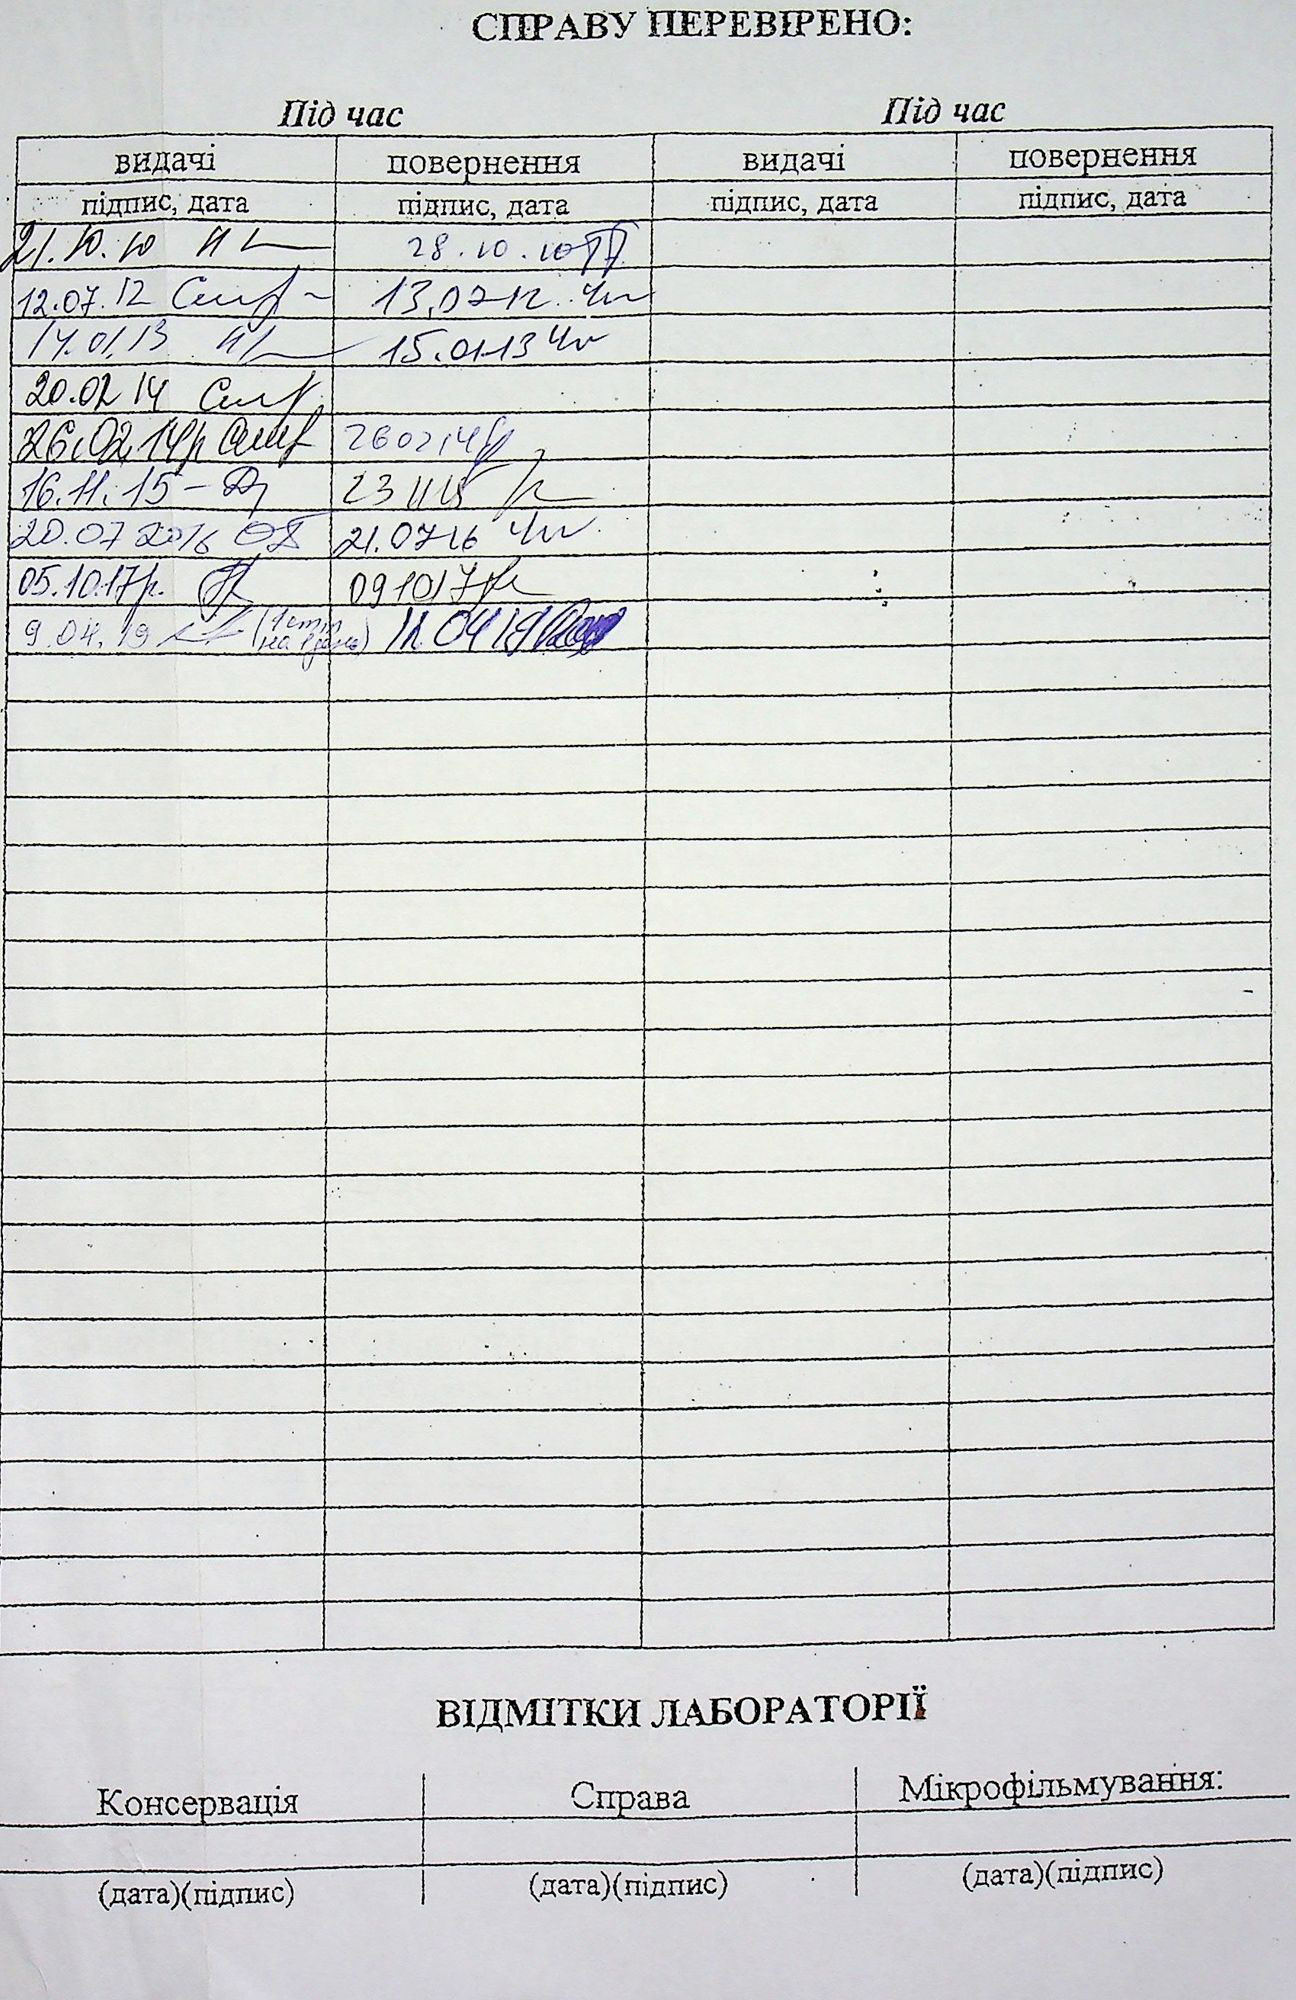 СПРАВУ ПЕРЕВІРЕНО:
Під час Під час
видачі повернення видачі повернення
підпис, дата підпис, дата підпис, дата підпис, дата
21.10.10 28.10.10
12.07.12 13.07.12
14.01.13 15.01.13
20.02 14
26.02.14р 26 02 14р
16.11.15 23 11 15
20.07 2016 21.07 16
05.10.17р. 09 10 17
9.04.19 04 19
ВІДМІТКИ ЛАБОРАТОРІЇ
Консервація Справа Мікрофільмування:
(дата)(підпис) (дата)(підпис) (дата)(підпис)